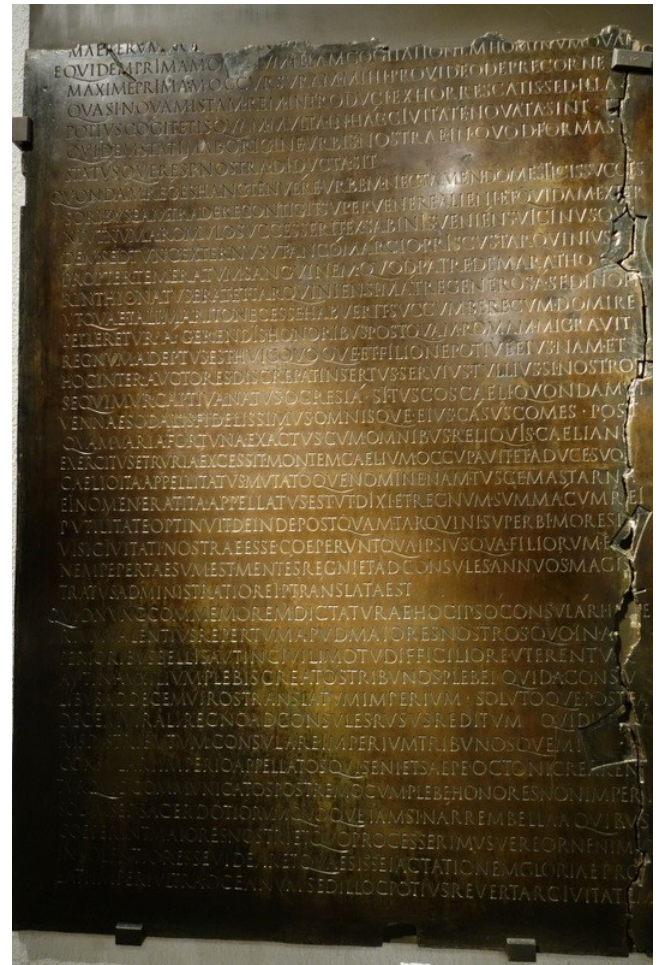 MAERERVM
EQVIDEMPRIMAMOMNIVMILLAMCOGITATIONEMHOMINVMQVAM
MAXIMEPRIMAMOCCVRSVRAMMIHIPROVIDEODEPRECORNE
QVASINOVAMISTAMREMINTRODVCIEXHORRESCATISSEDILLA
POTIVSCOGITETISQVAMMVLTAINHACCIVITATENOVATASINT
QVIDEMSTATIMABORIGINEVRBISNOSTRAEINQVODFORMAS
STATVSQVERESPNOSTRADIDVCTASIT
QVONDAMREGESHANCTENVEREVRBEMNECTAMENDOMESTICISSVCCES
SORIBVSEAMTRADERECONTIGITSVPERVENEREALIENIETQVIDAMEXTER
NIVTNVMAROMVLOSVCCESSERITEXSABINISVENIENSVICINVSQV
DEMSEDTVNCEXTERNVSVTANCOMARCIOPRISCVSTARQVINIVS
PROPTERTEMERATVMSANGVINEMQVODPATREDEMARATHO
RINTHIONATVSERATETTARQVINIENSIMATREGENEROSASEDINOP
VTQVAETALIMARITONECESSEHABVERITSVCCVMBERECVMDOMIRE
PELLERETVRAGERENDISHONORIBVSPOSTQVAMROMAMMIGRAVIT
REGNVMADEPTVSESTHVICQVOQVEETFILIONEPOTIVEEIVSNAMET
HOCINTERAVCTORESDISCREPATINSERTVSSERVIVSTVLLIVSSINOSTRO
SEQVIMVRCAPTIVANATVSOCRESIA·SITVSCOSCAELIQVONDAM
VENNAESODALISFIDELISSIMVSOMNISQVEEIVSCASVSCOMES·POST
QVAMVARIAFORTVNAEXACTVSCVMOMNIBVSRELIQVISCAELIAN
EXERCITVSETRVRIAEXCESSITMONTEMCAELIVMOCCVPAVITETADVCESVO
CAELIOITAAPPELLITATVSMVTATOQVENOMINENAMTVSCEMASTARN
EINOMENERATITAAPPELLATVSESTVTDIXIETREGNVMSVMMACVMREI
PVTILITATEOPTINVITDEINDEPOSTQVAMTARQVINISVPERBIMORES
VISICIVITATINOSTRAEESSECOEPERVNTQVAIPSIVSQVAFILIORVME
NEMPEPERTAESVMESTMENTESREGNIETADCONSVLESANNVOSMAGIS
TRATVSADMINISTRATIOREIPTRANSLATAEST
QVIDNVNCCOMMEMOREMDICTATVRAEHOCIPSOCONSVLARI
VMVALENTIVSREPERTVMAPVDMAIORESNOSTROSQVOINA
PERIORIBVSBELLISAVTINCIVILIMOTVDIFFICILIOREVTERENTV
AVTINAVXILIVMPLEBISCREATOSTRIBVNOSPLEBEIQVIDACONS
LIBVSADDECEMVIROSTRANSLATVMIMPERIVMSOLVTOQVEPOST
DECEMVIRALIREGNOADCONSVLESRVSVSREDITVMQVID
RISDISTRIBVTVMCONSVLAREIMPERIVMTRIBVNOSQVEMI
CONSVLARIIMPERIOAPPELLATOSQVISENIETSAEPEOCTONICREAREN
TVRQVIDCOMMVNICATOSPOSTREMOCVMPLEBEHONORESNONIMPERI
SOLVMSEDSACERDOTIORVMQVOQVEIAMSINARREMBELLAAQVIBVS
COEPERINTMAIORESNOSTRIETQVOPROCESSERIMVSVEREORNENIM
INSOLENTIORESSEVIDEARETQVAESISSEIACTATIONEMGLORIAEPRO
LATIIMPERIVLTRAOCEANVMSEDILLOCPOTIVSREVERTARCIVITATEM